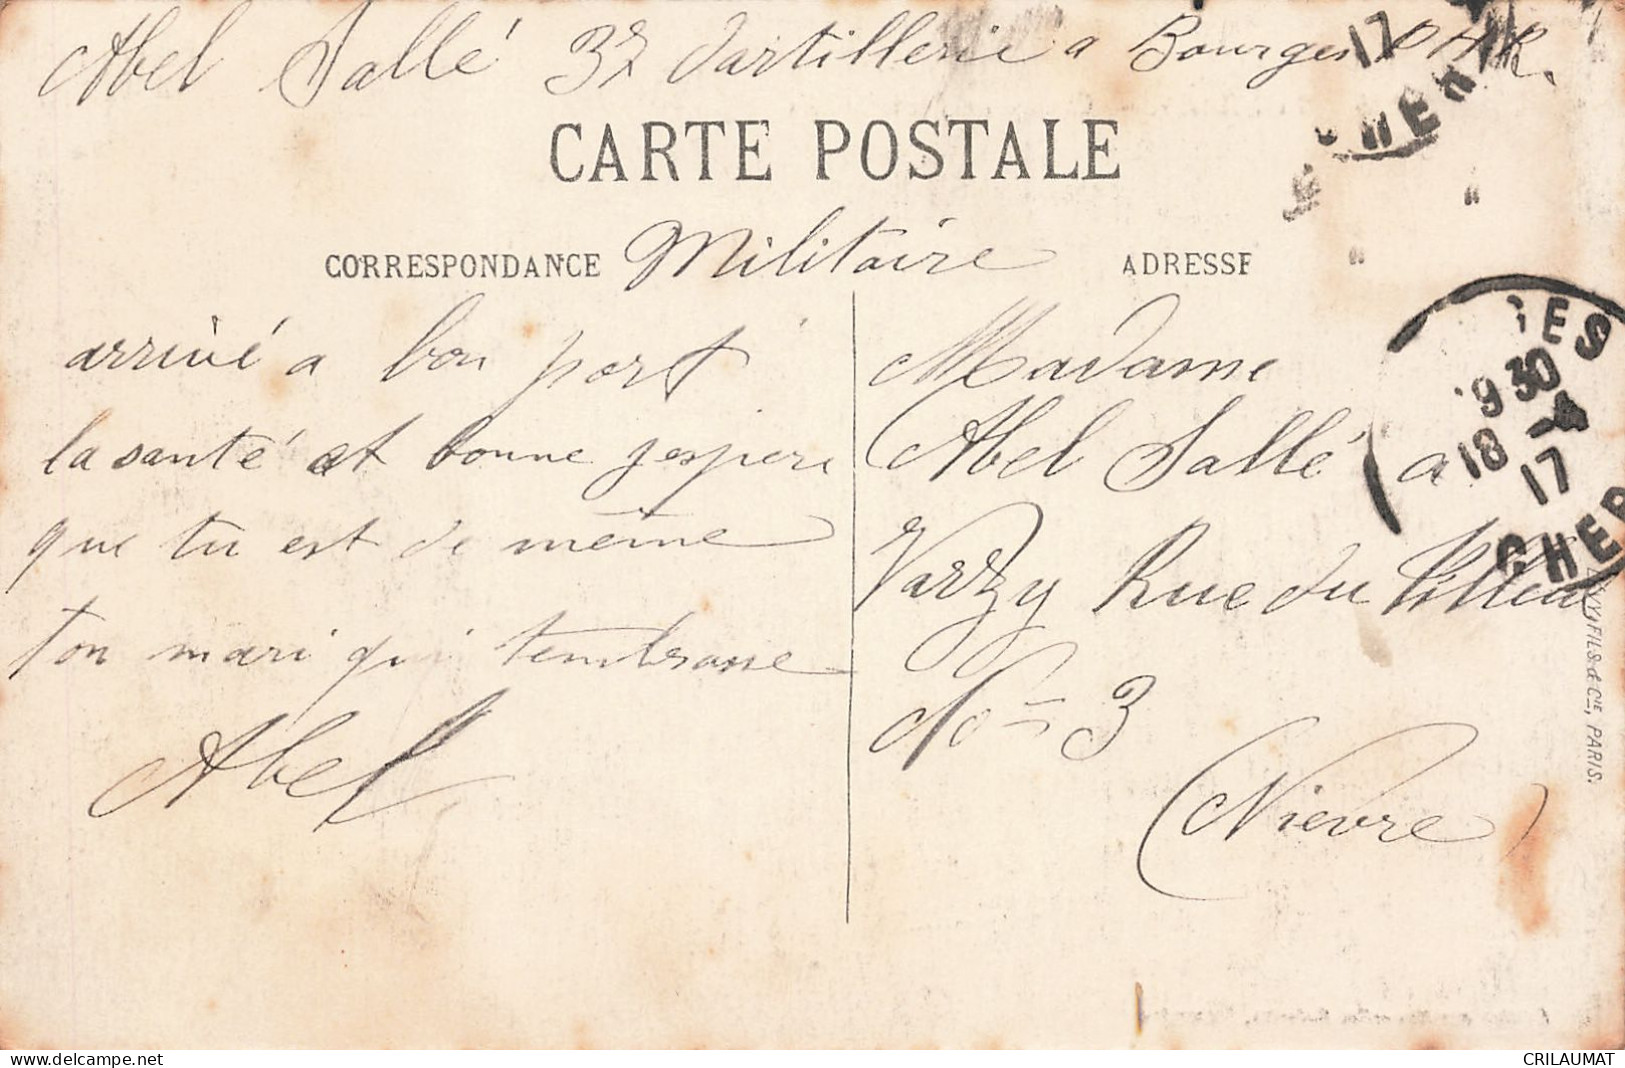 Abel Sallé 37 dartillerie a Bourges P H R.
17
CHER
CARTE POSTALE
CORRESPONDANCE Militaire ADRESSE
arrivé a bon port
la santé et bonne jespere
que tu est de même
ton mari qui tembrasse
Abel
Madame
Abel Sallé a
Varzy Rue du
No = 3
(Nievre)
GES
9 30
18 - 4
17
CHER
LÉVY FILS & Cie, PARIS.
CRILAUMAT